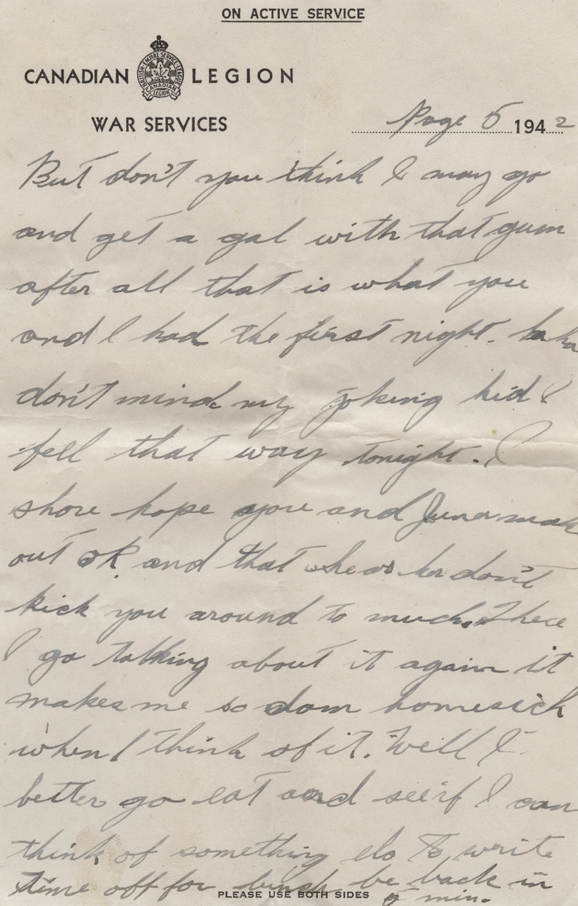 ON ACTIVE SERVICE
CANADIAN LEGION
WAR SERVICES
Page 5 1942
But don't you think I may go
and get a gal with that gum
after all that is what you
and I had the first night. haha
don't mind my joking kid I
fell that way tonight. I
shore hope you and June make
out OK and that she don't
kick you around to much. There
I go talking about it again it
makes me so dam homesick
when I think of it. Well I
better go eat and see if I can
think of something els to write
time off for be back in
5 min.
PLEASE USE BOTH SIDES